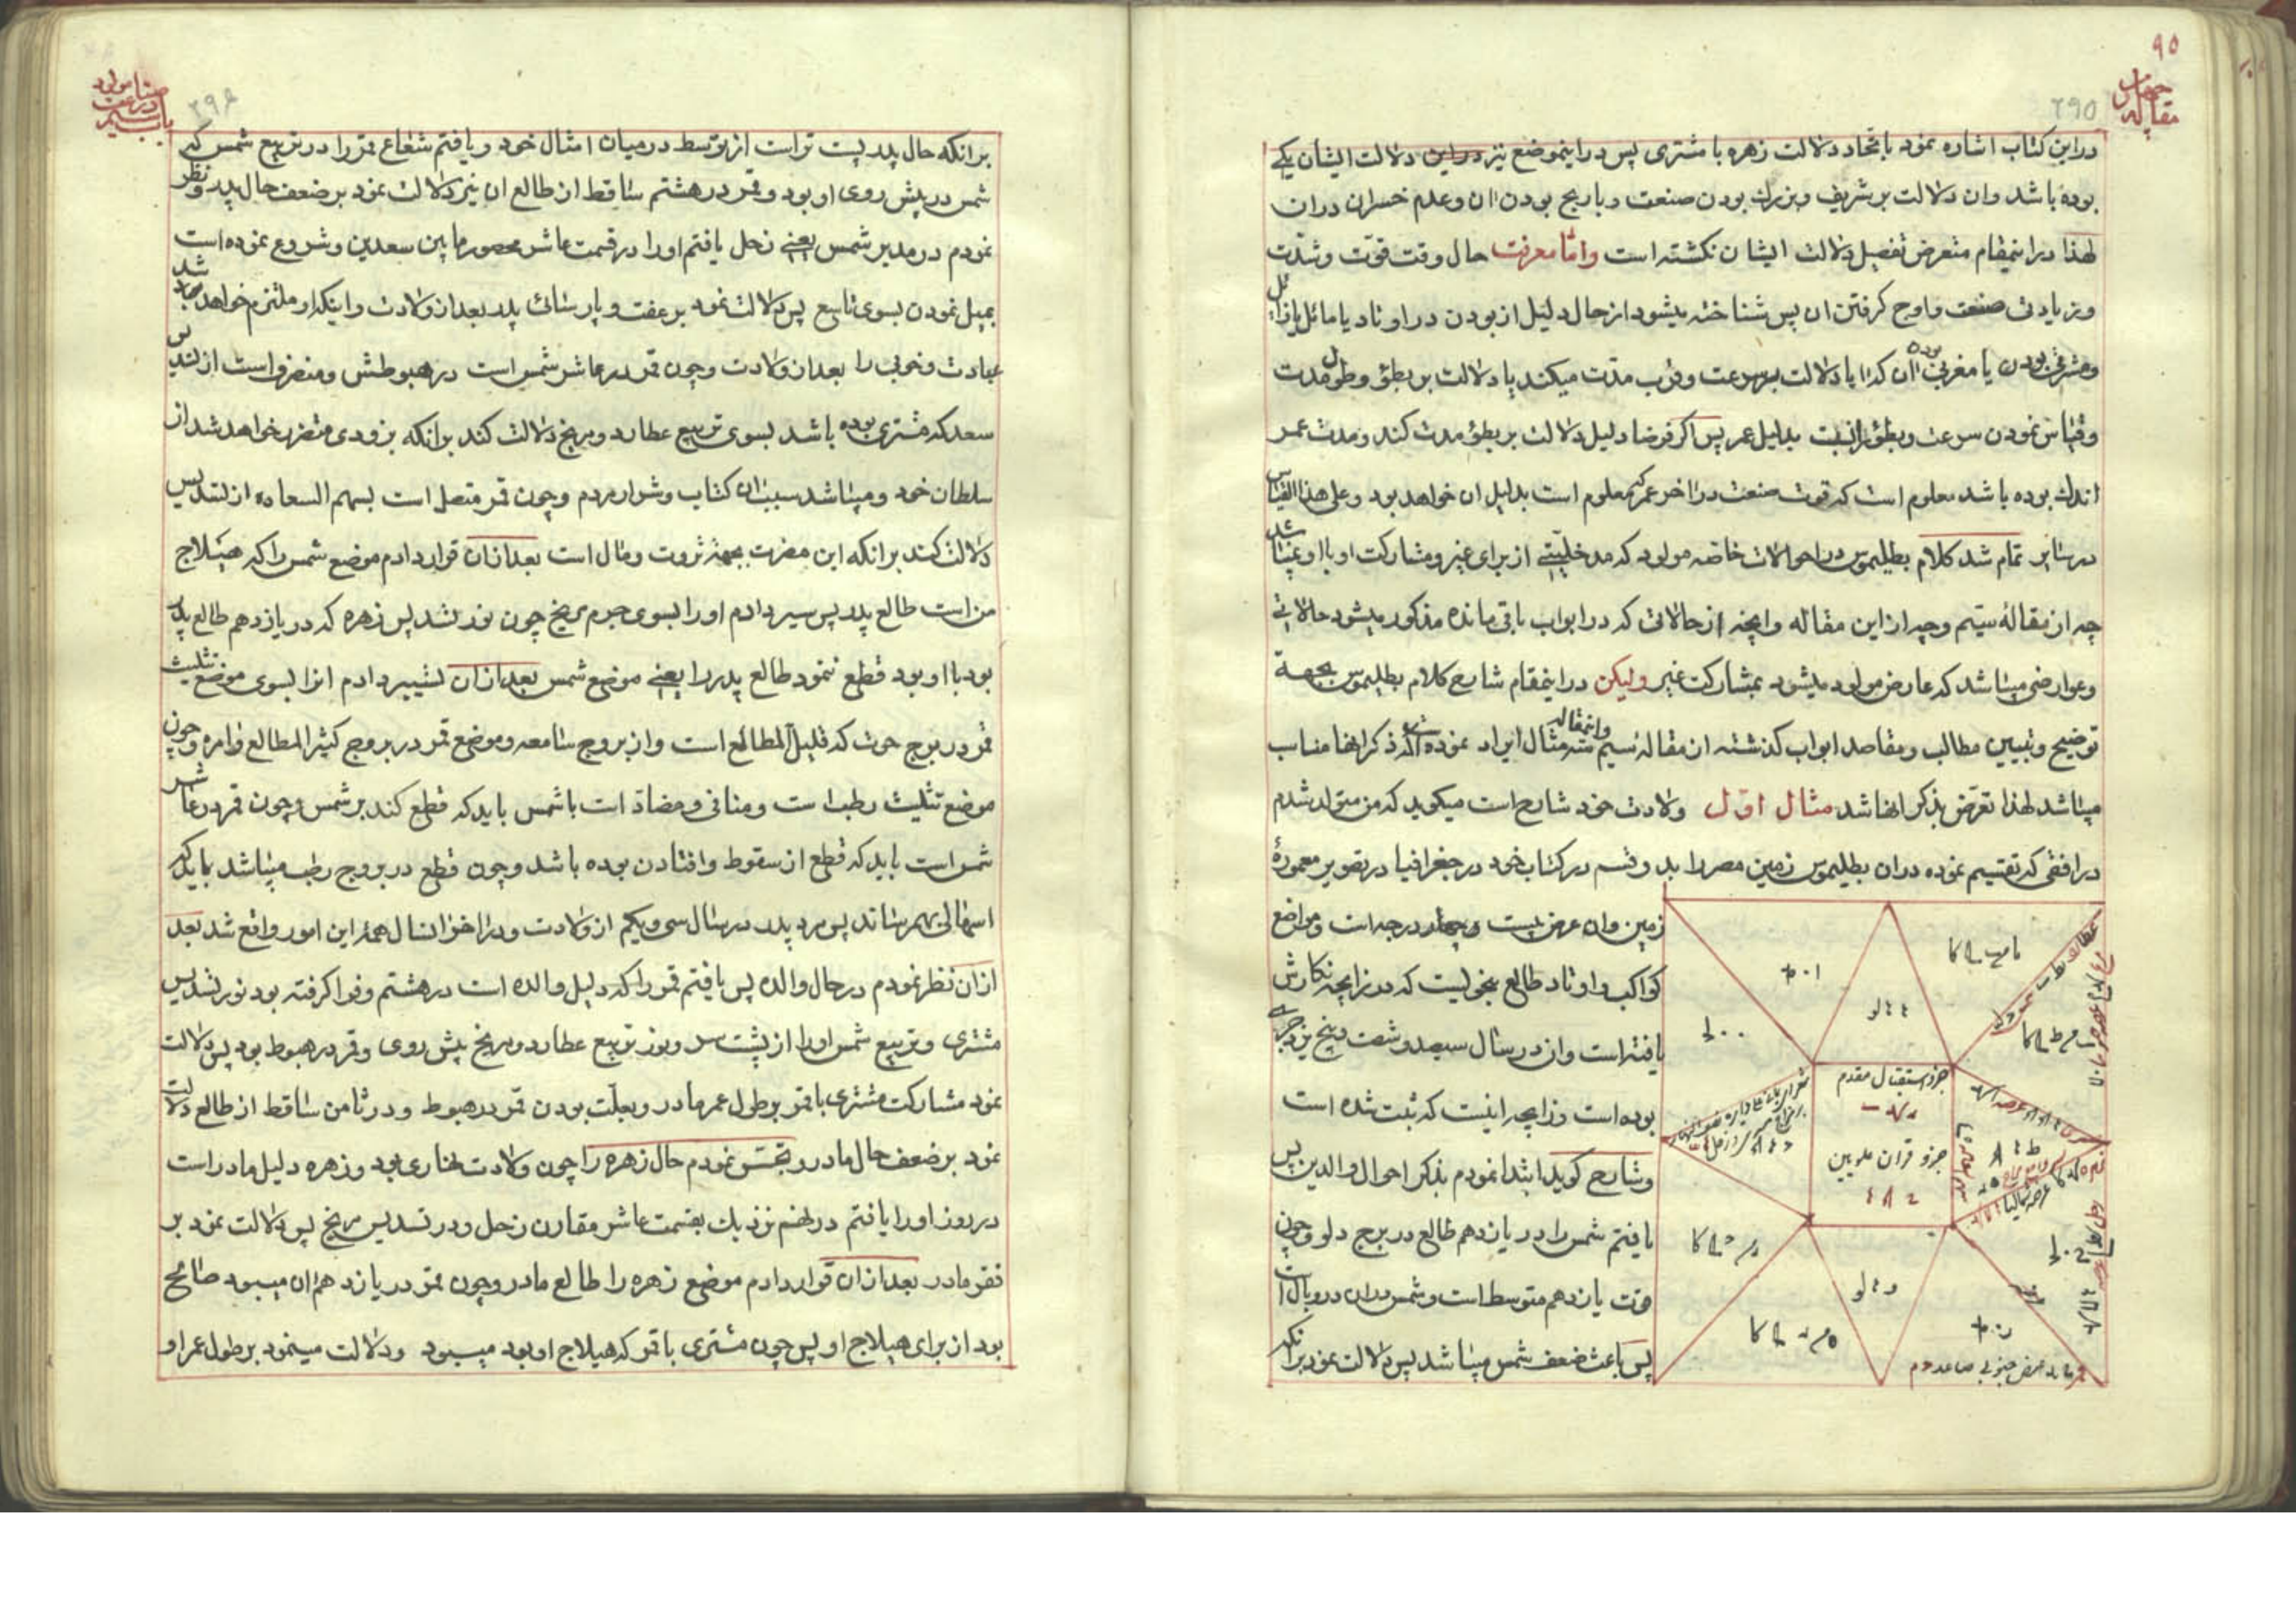 ۹۵
مقاله چهارم
۲۹۵
دراین کتاب اشاره نمود باتحاد دلالت زهره با مشتری پس دراینموضع نیز دراین دلالت ایشان یکے
بوده باشد وان دلالت بر شریف وبزرك بودن صنعت وبا ربح بودن ان وعدم خسران دران
لهذا دراینمقام متعرض تفصیل دلالت ایشان نکشته است واما معرفت حال وقت قوت وشدت
وزیادتی صنعت واوج کرفتن ان پس شناخته میشود از حال دلیل از بودن در اوتاد یا مائل یازائل
ومشرقی بودن یا مغربی بودن ان که ایا دلالت بر سرعت وقرب مدت میکند یا دلالت بر بطؤ وطول مدت
وقیاس نمودن سرعت وبطؤ بدلیل عمر پس اکر فرضا دلیل دلالت بر بطؤ مدت کند ومدت عمر
اندك بوده باشد معلوم است که قوت صنعت در اخر عمر که معلوم است بدلیل ان خواهد بود وعلی هذا القیاس
در سایر تمام شد کلام بطلیموس در احوالات خاصه مولود که مدخلیتے از برای غیر ومشارکت او با او نمیباشد
چه از مقالهٔ سیم وچه از این مقاله وانچه از حالاتی که در ابواب باقی مانده مذکور میشود حالاتی
وعوارضی میباشد که عارض مولود میشود بمشارکت غیر ولیکن دراینمقام شارح کلام بطلیموس بجهة
توضیح وتبیین مطالب ومقاصد ابواب کذشته از مقالهٔ سیم واینمقاله سه مثال ایراد نموده است که ذکر انها مناسب
میباشد لهذا تعرض بذکر انها شد مثال اول ولادت خود شارح است میکوید که من متولد شدم
در افقی که تقسیم نموده دران بطلیموس زمین مصر را بدو قسم در کتاب خود در جغرافیا در تصویر معمورهٔ
زمین وان عرض بیست وچهار درجه است ومواضع
کواکب واوتاد طالع بنحویست که در زایچه نکارش
یافته است وان در سال سیصد وشصت وپنج یزدجردی
بوده است وزایچه اینست که ثبت شده است
وشارح کوید ابتدا نمودم بذکر احوال والدین پس
یافتم شمس را در یازدهم طالع در برج دلو وچون
قوت یازدهم متوسط است وشمس دران در وبال است
پس باعث ضعف شمس میباشد پس دلالت نمود برانکه
جزو استقبال مقدم
جزو قران علویین
عرض جنوبی صاعد
۲۹۶
باب سیم در صنعت مولود
برانکه حال پدر پست تراست از توسط درمیان امثال خود ویافتم شعاع قمر را در تربیع شمس که
شمس در پیش روی او بود وقمر در هشتم ساقط از طالع ان نیز دلالت نمود بر ضعف حال پدر ونظر
نمودم در مدبر شمس یعنے زحل یافتم او را در قسمت عاشر محصور مابین سعدین وشروع نموده است
بمیل نمودن بسوی تاسع پس دلالت نمود بر عفت وپارسائی پدر بعد از ولادت واینکه او ملتزم خواهد شد
عبادت وخوبی را بعد از ولادت وچون قمر در عاشر شمس است در هبوطش ومنصرف است از تسدیس
سعد که مشتری بوده باشد بسوی تربیع عطارد ومریخ دلالت کند برانکه بزودی متضرر خواهد شد از
سلطان خود ومیباشد سبب ان کتاب وشرار مردم وچون قمر متصل است بسهم السعاده از تسدیس
دلالت کند برانکه این مضرت بجهة ثروت ومال است بعد ازان قرار دادم موضع شمس را که هیلاج
من است طالع پدر پس سیر دادم او را بسوی جرم مریخ چون نور تسدیس زهره که در یازدهم طالع پدر
بود با او بود قطع ننمود طالع پدر را یعنے موضع شمس بعد ازان تسییر دادم انرا بسوی موضع تثلیث
قمر در برج حوت که قلیل المطالع است واز بروج سامعه وموضع قمر در بروج کثیر المطالع وامره وچون
موضع تثلیث رطب است ومنافی ومضاد است با شمس باید که قطع کند بر شمس وچون قمر در عاشر
شمس است باید که قطع از سقوط وافتادن بوده باشد وچون قطع در بروج رطب میباشد باید که
اسهالی بهم رساند پس مرد پدر در سال سی ویکم از ولادت ودر اخر انسال همهٔ این امور واقع شد بعد
ازان نظر نمودم در حال والده پس یافتم قمر را که دلیل والده است در هشتم وفرا کرفته بود نور تسدیس
مشتری وتربیع شمس او را از پشت سر ونور تربیع عطارد ومریخ پیش روی وقمر در هبوط بود پس دلالت
نمود مشارکت مشتری باقمر بر طول عمر مادر وبعلت بودن قمر در هبوط ودر ثامن ساقط از طالع دلالت
نمود بر ضعف حال مادر وتجسس نمودم حال زهره را چون ولادت نهاری بود وزهره دلیل مادر است
در روز او را یافتم در نهم نزدیك بقسمت عاشر مقارن زحل ودر تسدیس مریخ پس دلالت نمود بر
فقر مادر بعد ازان قرار دادم موضع زهره را طالع مادر وچون قمر در یازدهم ان میبود صالح
بود از برای هیلاج او پس چون مشتری باقمر که هیلاج او بود میبود ودلالت مینمود بر طول عمر او